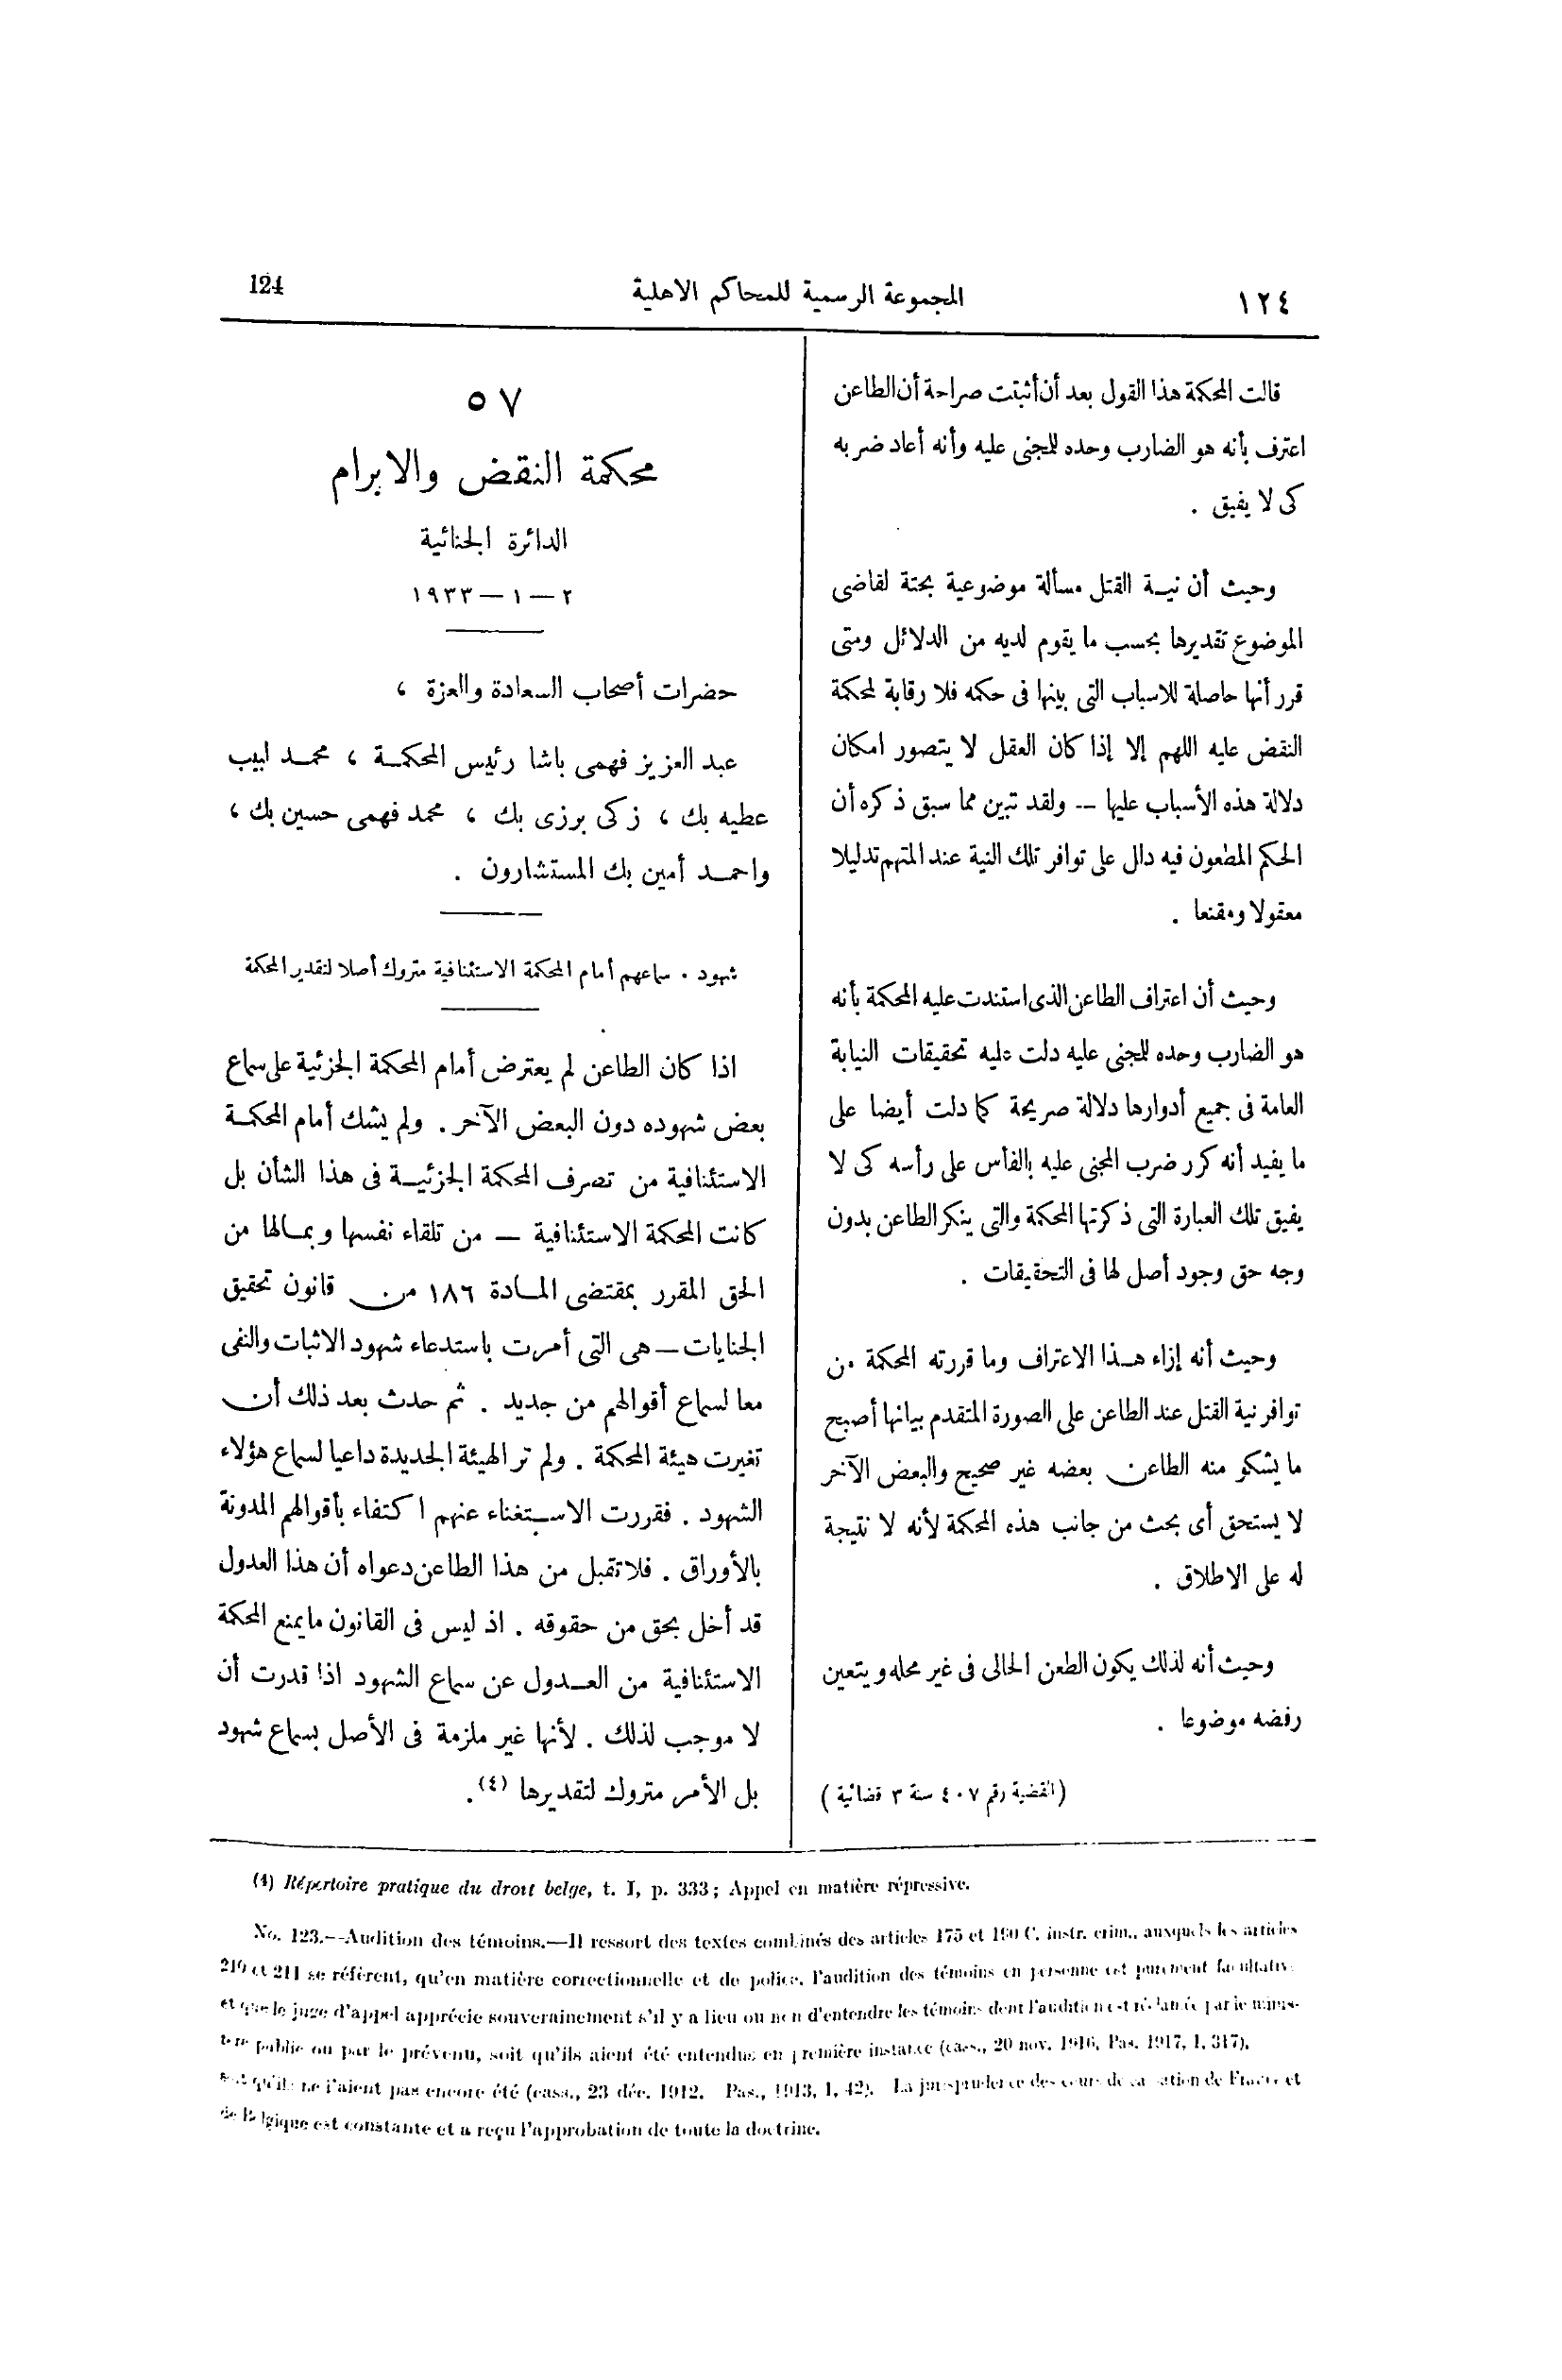 ١٢٤
المجموعة الرسمية للمحاكم الاهلية
124
قالت المحكمة هذا القول بعد أن أثبتت صراحة أن الطاعن
اعترف بأنه هو الضارب وحده للمجنى عليه وأنه أعاد ضربه
كى لا يفيق .
وحيث أن نيـة القتل مسألة موضوعية بحتة لقاضى
الموضوع تقديرها بحسب ما يقوم لديه من الدلائل ومتى
قرر أنها حاصلة للاسباب التى بينها فى حكمه فلا رقابة لمحكمة
النقض عليه اللهم إلا إذا كان العقل لا يتصور امكان
دلالة هذه الأسباب عليها -- ولقد تبين مما سبق ذكره أن
الحكم المطعون فيه دال على توافر تلك النية عند المتهم تدليلا
معقولا ومقنعا .
وحيث أن اعتراف الطاعن الذى استندت عليه المحكمة بأنه
هو الضارب وحده للمجنى عليه دلت عليه تحقيقات النيابة
العامة فى جميع أدوارها دلالة صريحة كما دلت أيضا على
ما يفيد أنه كرر ضرب المجنى عليه بالفأس على رأسه كى لا
يفيق تلك العبارة التى ذكرتها المحكمة والتى ينكر الطاعن بدون
وجه حق وجود أصل لها فى التحقيقات .
وحيث أنه إزاء هـذا الاعتراف وما قررته المحكمة من
توافر نية القتل عند الطاعن على الصورة المتقدم بيانها أصبح
ما يشكو منه الطاعن بعضه غير صحيح والبعض الآخر
لا يستحق أى بحث من جانب هذه المحكمة لأنه لا نتيجة
له على الاطلاق .
وحيث أنه لذلك يكون الطعن الحالى فى غير محله ويتعين
رفضه موضوعا .
(القضية رقم ٤٠٧ سنة ٣ قضائية )
٥٧
محكمة النقض والابرام
الدائرة الجنائية
٢ — ١ — ١٩٣٣
حضرات أصحاب السعادة والعزة ،
عبد العزيز فهمى باشا رئيس المحكمـة ، محمـد لبيب
عطيه بك ، زكى برزى بك ، محمد فهمى حسين بك ،
واحمـد أمين بك المستشارون .
شهود . سماعهم أمام المحكمة الاستئنافية متروك أصلا لتقدير المحكمة
اذا كان الطاعن لم يعترض أمام المحكمة الجزئية على سماع
بعض شهوده دون البعض الآخر . ولم يشك أمام المحكمـة
الاستئنافية من تصرف المحكمة الجزئيـة فى هذا الشأن بل
كانت المحكمة الاستئنافية — من تلقاء نفسها وبمـالها من
الحق المقرر بمقتضى المـادة ١٨٦ من قانون تحقيق
الجنايات — هى التى أمرت باستدعاء شهود الاثبات والنفى
معا لسماع أقوالهم من جديد . ثم حدث بعد ذلك أن
تغيرت هيئة المحكمة . ولم تر الهيئة الجديدة داعيا لسماع هؤلاء
الشهود . فقررت الاسـتغناء عنهم اكتفاء بأقوالهم المدونة
بالأوراق . فلا تقبل من هذا الطاعن دعواه أن هذا العدول
قد أخل بحق من حقوقه . اذ ليس فى القانون مايمنع المحكمة
الاستئنافية من العـدول عن سماع الشهود اذا قدرت أن
لا موجب لذلك . لأنها غير ملزمة فى الأصل بسماع شهود
بل الأمر متروك لتقديرها (٤).
(4) Répertoire pratique du droit belge, t. I, p. 333; Appel en matière répressive.
No. 123.--Audition des témoins.—Il ressort des textes combinés des articles 175 et 190 C. instr. crim., auxquels les articles
210 et 211 se réfèrent, qu'en matière correctionnelle et de police, l'audition des témoins en personne est purement facultative
et que le juge d'appel apprécie souverainement s'il y a lieu ou non d'entendre les témoins dont l'audition est réclamée par le minis-
tère public ou par le prévenu, soit qu'ils aient été entendus en première instance (cass., 20 nov. 1916, Pas. 1917, I, 317),
soit qu'ils ne l'aient pas encore été (cass., 23 déc. 1912. Pas., 1913, I, 42). La jurisprudence des cours de cassation de France et
de Belgique est constante et a reçu l'approbation de toute la doctrine.